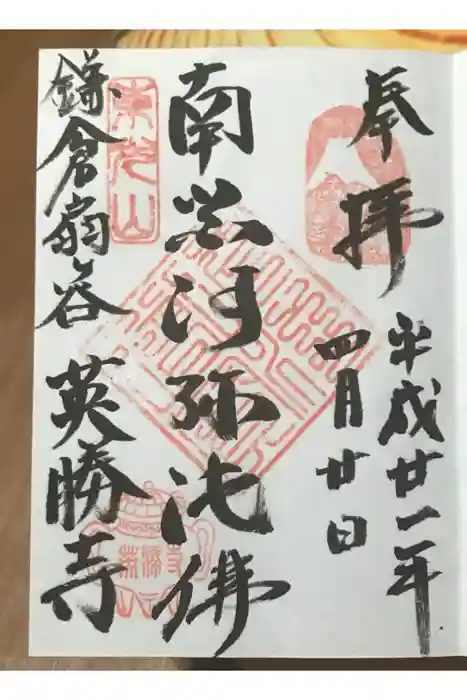 奉拝
平成廿一年
四月廿日
南無阿弥陀佛
鎌倉扇ヶ谷 英勝寺
東光山
英勝寺